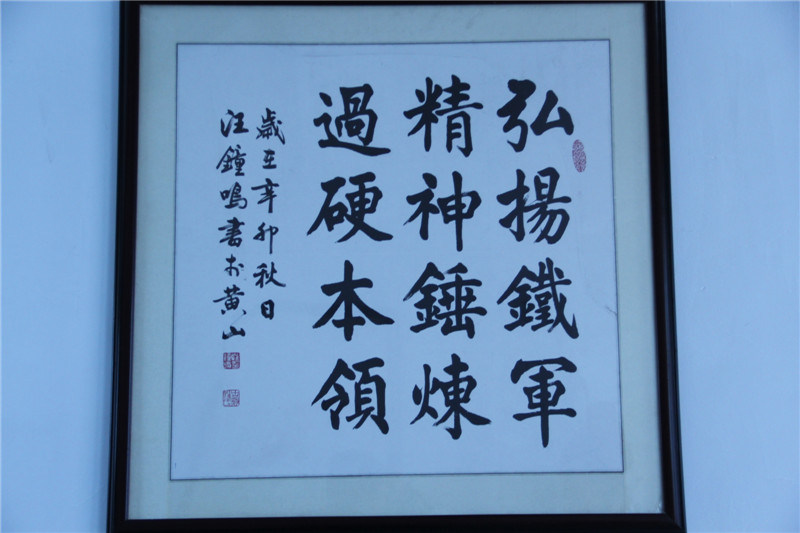 弘揚鐵軍
精神錘煉
過硬本領
歲在辛卯秋日
汪鐘鳴書於黄山